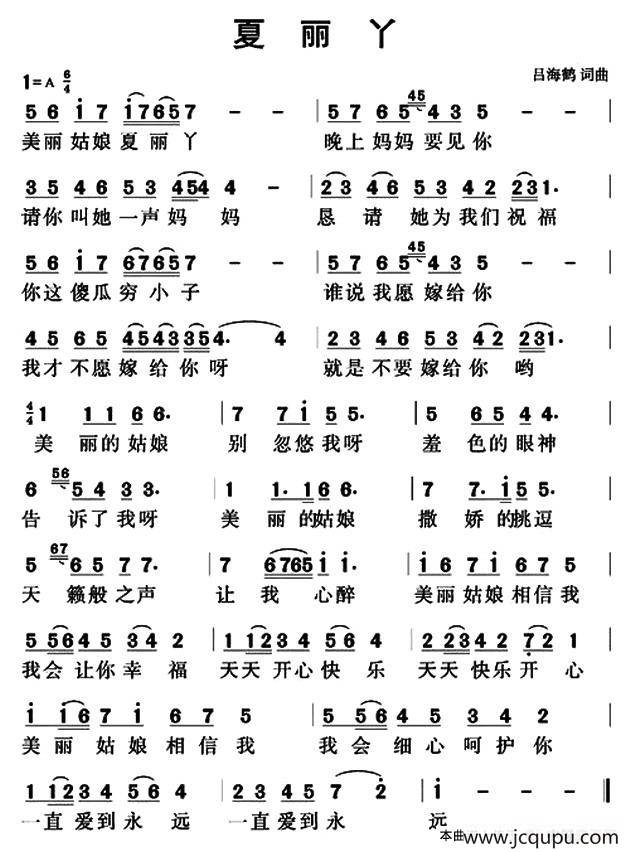 夏丽丫
1=A 6/4 吕海鹤 词曲
5 6 i 7 i7657 - - | 5 7 6 5 45 4 3 5 - - |
美丽姑娘夏丽丫 晚上妈妈要见你
3 5 4 6 5 3 454 4 - | 2 3 4 6 5 3 4 2 231. |
请你叫她一声妈妈 恳请她为我们祝福
5 6 i 7 67657 - - | 5 7 6 5 45 4 3 5 - - |
你这傻瓜穷小子 谁说我愿嫁给你
4 5 6 5 4543354. 4 | 2 3 4 6 5 3 4 2 231. |
我才不愿嫁给你呀 就是不要嫁给你哟
4/4 1 1 1 6 6. | 7 7 i 5 5. | 5 6 5 4 4. |
美丽的姑娘 别忽悠我呀 羞色的眼神
6 56 5 4 3 3. | 1 1. 1 6 6. | 7 7. i 5 5. |
告诉了我呀 美丽的姑娘 撒娇的挑逗
5 67 6 5 7 7. | 7 6765 i i. | i 6 7 i 6 7 5 |
天籁般之声 让我心醉 美丽姑娘相信我
5 5645 34 2 | 1 1234 56 5 | 2 2334 2 7 2 1 |
我会让你幸福 天天开心快乐 天天快乐开心
i i 6 7 i 6 7 5 | 5 5 6 4 5 3 4 2 |
美丽姑娘相信我 我会细心呵护你
1 1234 56 5 | 1 1234 3 7 2 | i - - - ‖
一直爱到永远 一直爱到永远
本曲 www.jcqupu.com